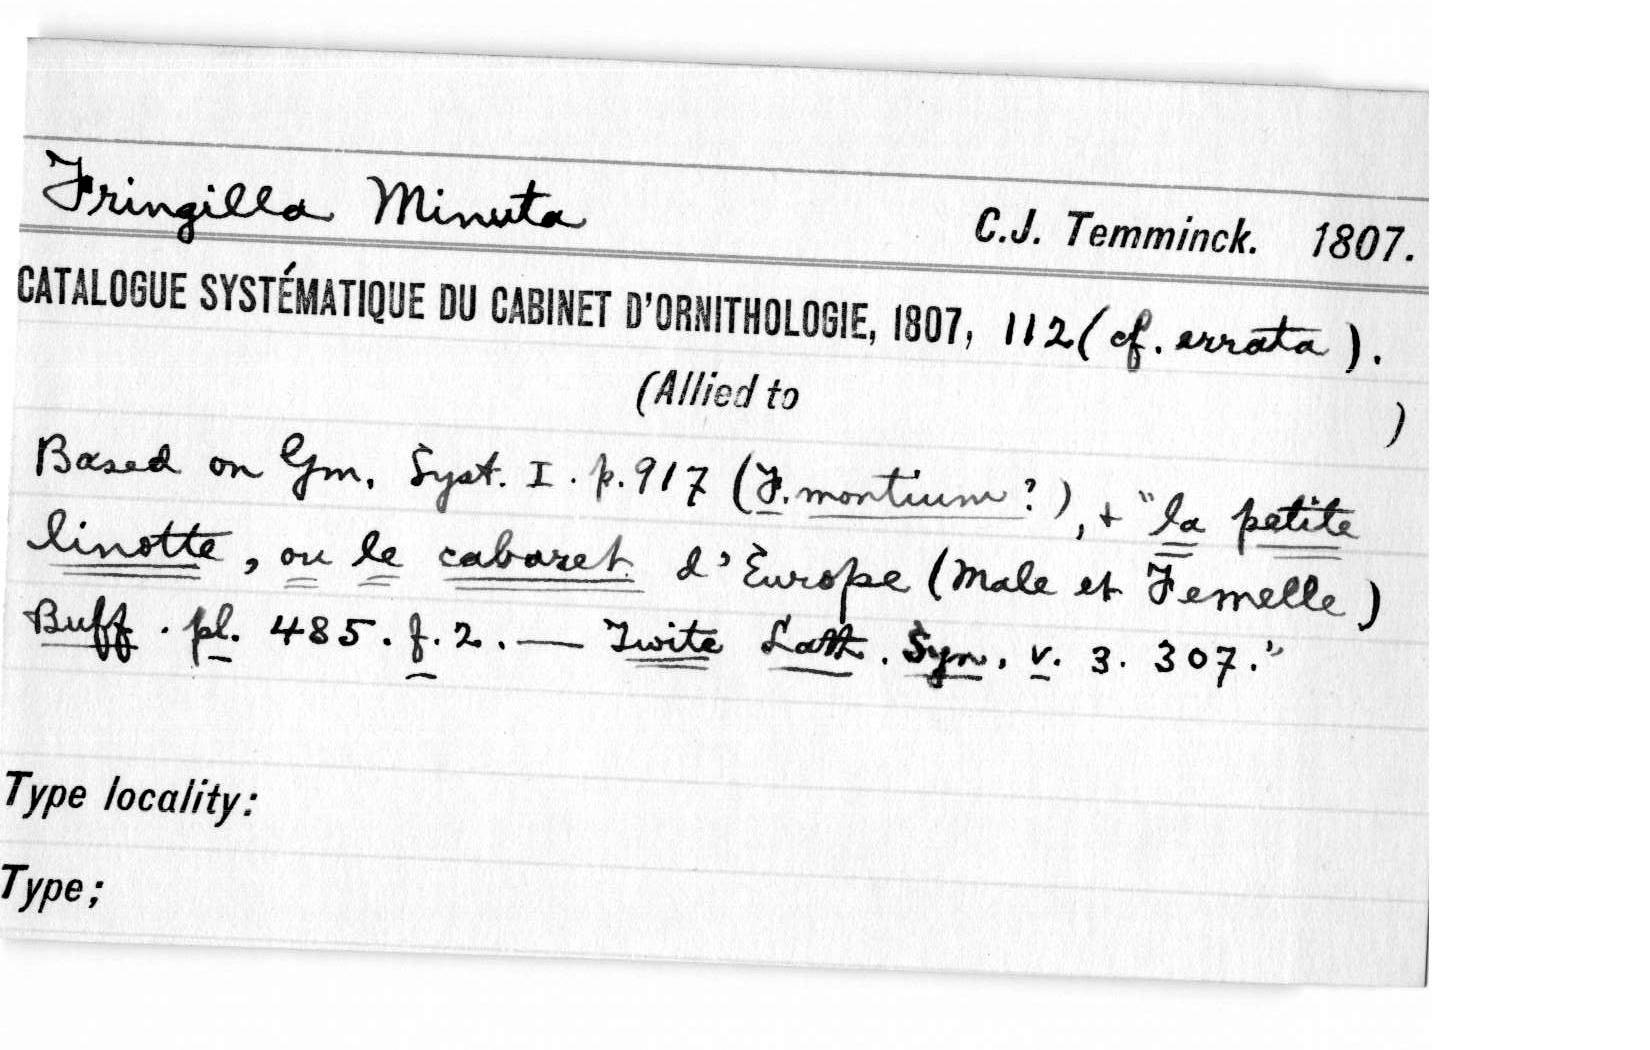 Fringilla Minuta C.J. Temminck. 1807.
CATALOGUE SYSTÉMATIQUE DU CABINET D'ORNITHOLOGIE, 1807, 112 (cf. errata).
(Allied to )
Based on Gm. Syst. I. p. 917 (F. montium?), + "la petite
linotte, ou le cabaret d'Europe (Male et Femelle)
Buff. pl. 485. f. 2. — Twite Lath. Syn. v. 3. 307."
Type locality:
Type;